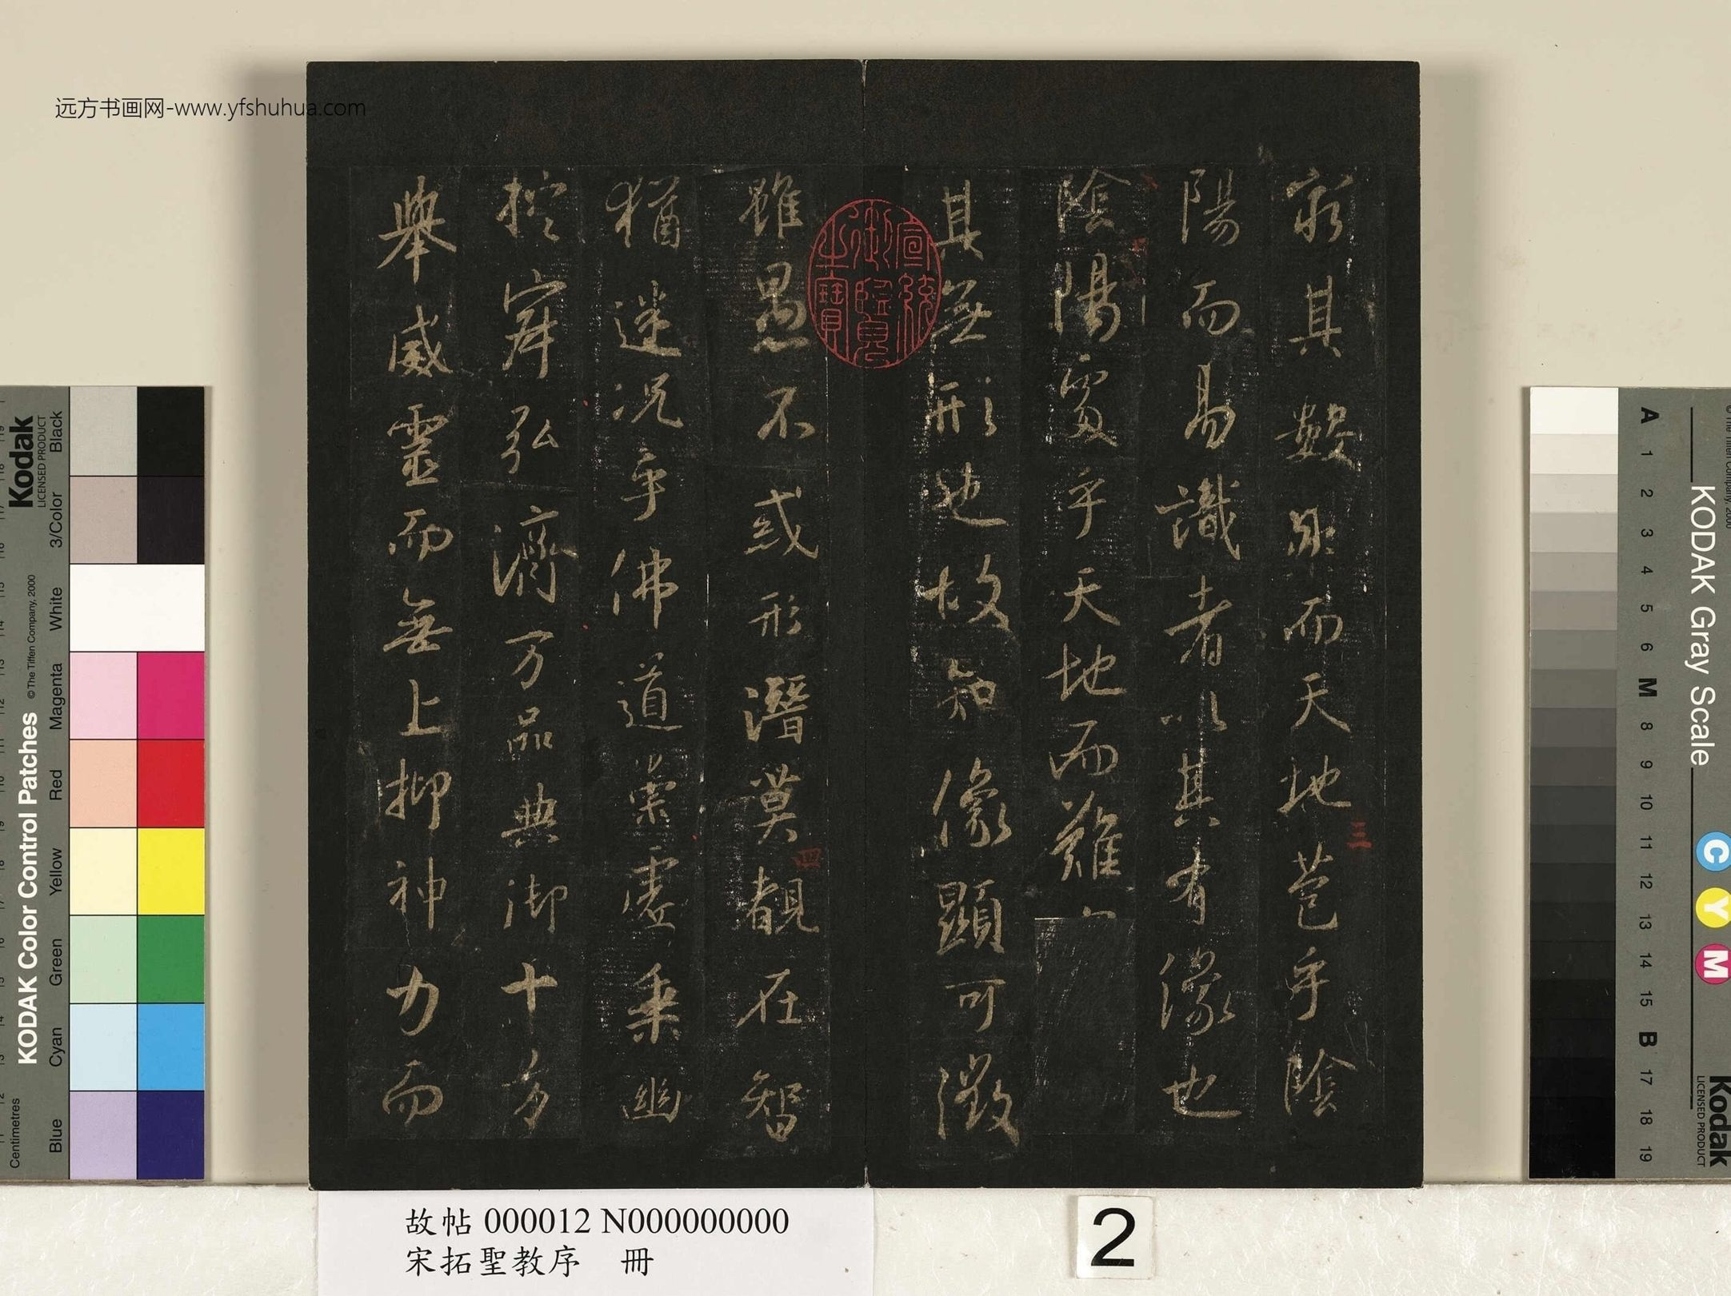 远方书画网-www.yfshuhua.com
窮其數然而天地苞乎陰
陽而易識者以其有像也
陰陽處乎天地而難
其無形也故知像顯可徵
雖愚不惑形潛莫覩在智
猶迷况乎佛道崇虛乘幽
控寂弘濟万品典御十方
舉威靈而無上抑神力而
三
四
宣統御覽之寶
故帖 000012 N000000000
宋拓聖教序 冊
2
Kodak
LICENSED PRODUCT
KODAK Color Control Patches
© The Tiffen Company, 2000
Centimetres
Black
3/Color
White
Magenta
Red
Yellow
Green
Cyan
Blue
KODAK Gray Scale
A
1
2
3
4
5
6
M
8
9
10
11
12
13
14
15
B
17
18
19
C
Y
M
Kodak
LICENSED PRODUCT